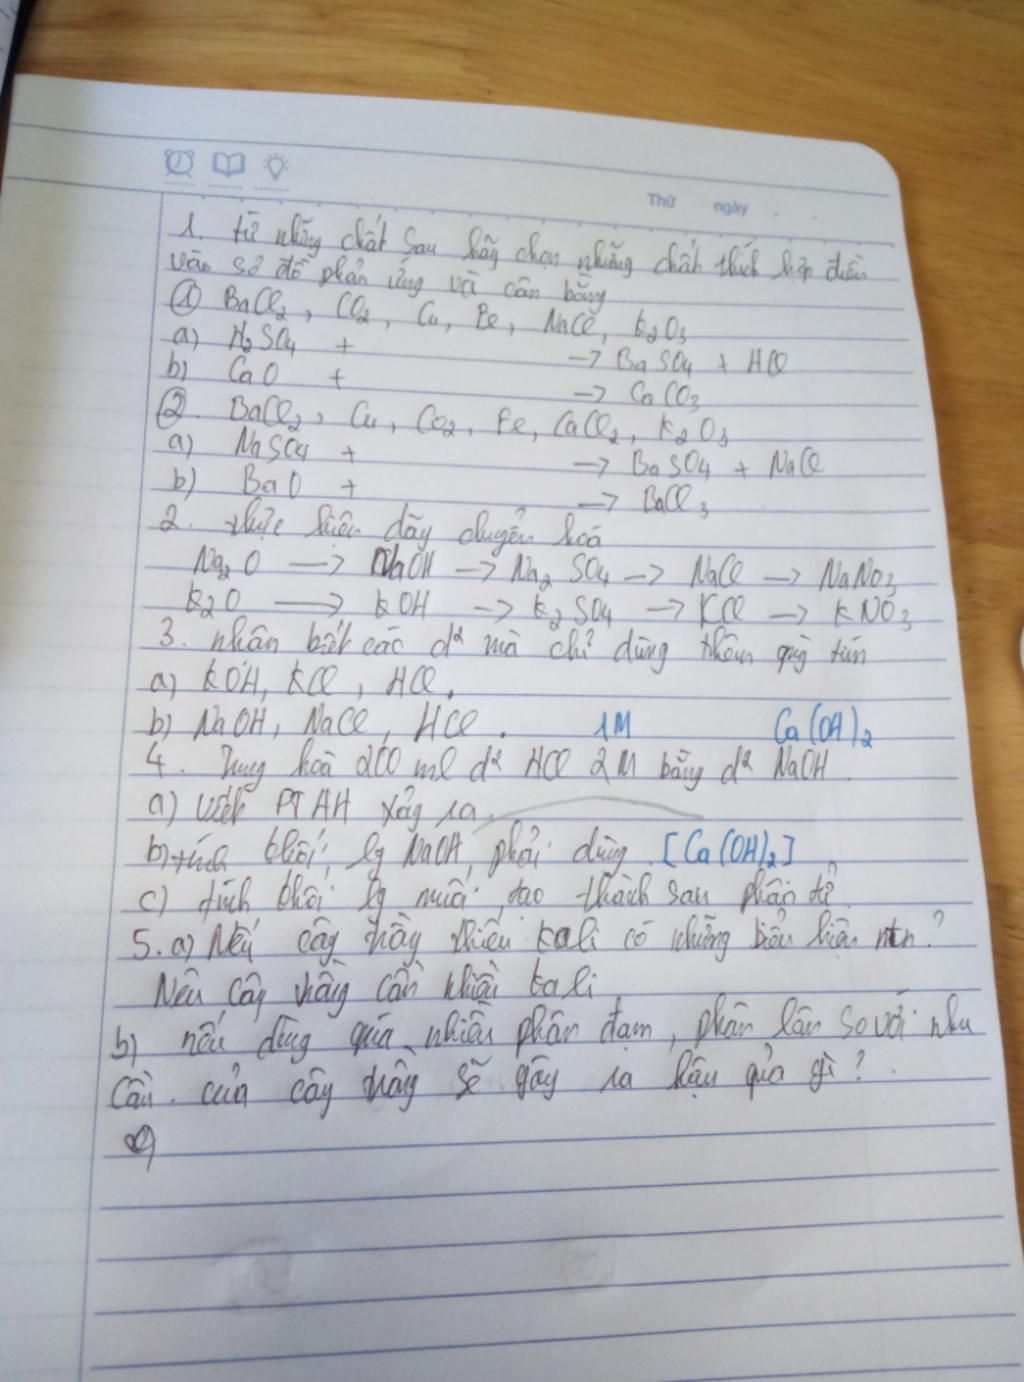 Thứ ngày
1. từ những chất sau hãy chọn những chất thích hợp điền
vào sơ đồ phản ứng và cân bằng
① BaCl2, CO2, Cu, Fe, NaCl, K2O3
a) H2SO4 + → BaSO4 + HCl
b) CaO + → CaCO3
②. BaCl2, Cu, Co2, Fe, CaCl2, K2O3
a) NaSO4 + → BaSO4 + NaCl
b) BaO + → BaCl3
2. thực hiện dãy chuyển hoá
Na2O → NaOH → Na2SO4 → NaCl → NaNO3
K2O → KOH → K2SO4 → KCl → KNO3
3. nhận biết các d² mà chỉ dùng thêm quỳ tím
a) KOH, KCl, HCl.
b) NaOH, NaCl, HCl. 1M Ca(OH)2
4. Trung hoà 200 ml d² HCl 2M bằng d² NaOH
a) viết PT HH xảy ra.
b) tính khối lg NaOH phải dùng. [Ca(OH)2]
c) tính khối lg muối tạo thành sau phản
5. a) Nếu cây trồng thiếu kali có những biểu hiện ntn?
Nêu cây trồng cần nhiều kali
b) nếu dùng quá nhiều phân đạm, phân lân so với nhu
cầu của cây trồng sẽ gây ra hậu quả gì?